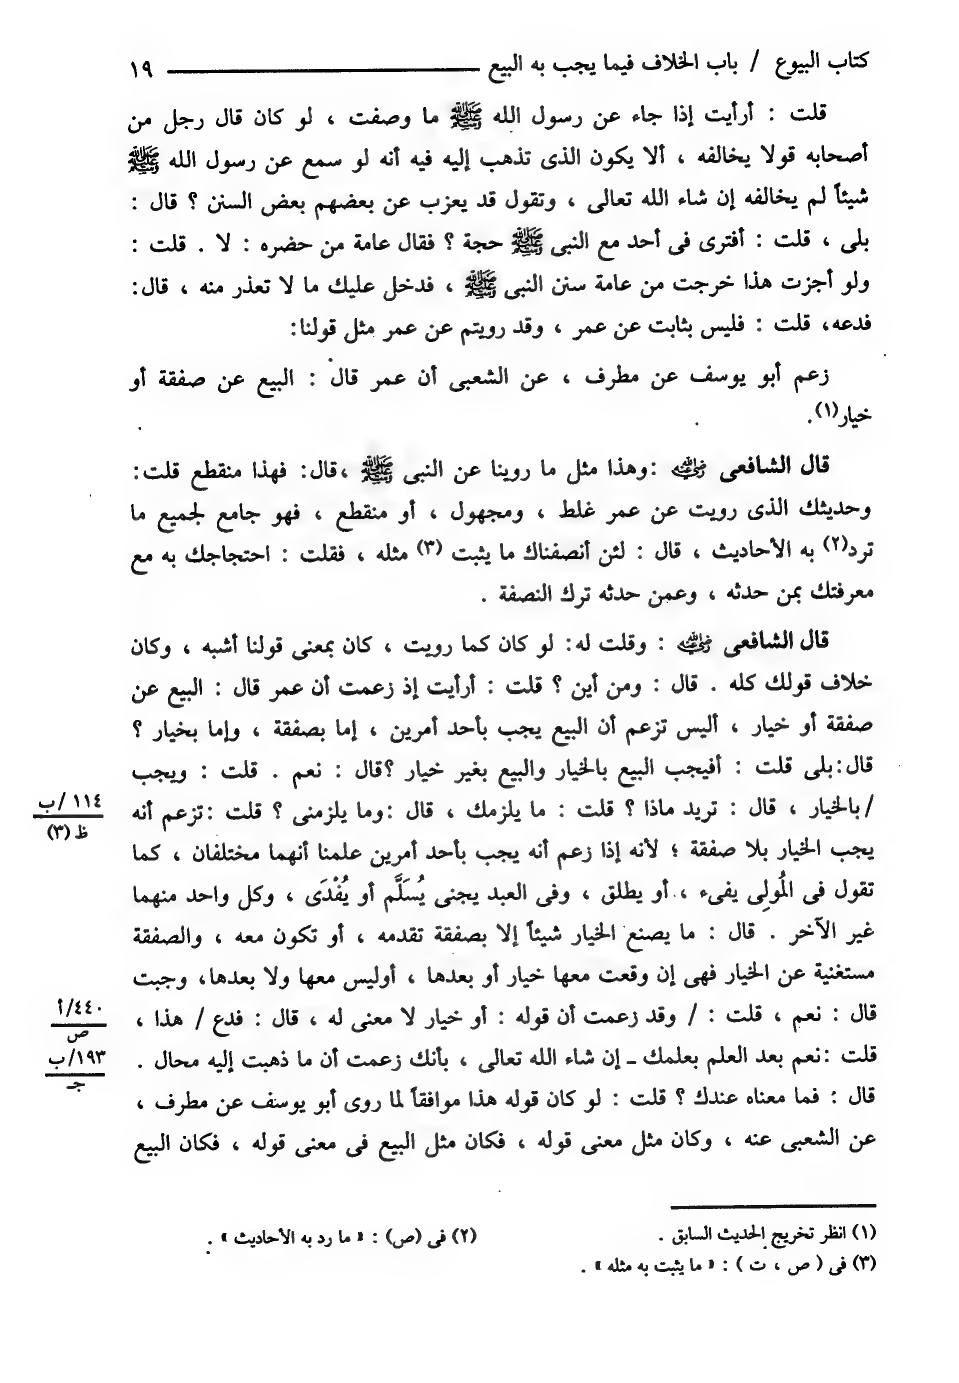 كتاب البيوع / باب الخلاف فيما يجب به البيع ١٩
قلت : أرأيت إذا جاء عن رسول الله ﷺ ما وصفت ، لو كان قال رجل من
أصحابه قولا يخالفه ، ألا يكون الذى تذهب إليه فيه أنه لو سمع عن رسول الله ﷺ
شيئاً لم يخالفه إن شاء الله تعالى ، وتقول قد يعزب عن بعضهم بعض السنن ؟ قال :
بلى ، قلت : أفترى فى أحد مع النبى ﷺ حجة ؟ فقال عامة من حضره : لا . قلت :
ولو أجزت هذا خرجت من عامة سنن النبى ﷺ ، فدخل عليك ما لا تعذر منه ، قال:
فدعه، قلت : فليس بثابت عن عمر ، وقد رويتم عن عمر مثل قولنا:
زعم أبو يوسف عن مطرف ، عن الشعبى أن عمر قال : البيع عن صفقة أو
خيار(١).
قال الشافعى رضي الله عنه :وهذا مثل ما روينا عن النبى ﷺ ،قال: فهذا منقطع قلت:
وحديثك الذى رويت عن عمر غلط ، ومجهول ، أو منقطع ، فهو جامع لجميع ما
ترد(٢) به الأحاديث ، قال : لئن أنصفناك ما يثبت (٣) مثله ، فقلت : احتجاجك به مع
معرفتك بمن حدثه ، وعمن حدثه ترك النصفة .
قال الشافعى رضي الله عنه : وقلت له: لو كان كما رويت ، كان بمعنى قولنا أشبه ، وكان
خلاف قولك كله . قال : ومن أين ؟ قلت : أرأيت إذ زعمت أن عمر قال : البيع عن
صفقة أو خيار ، أليس تزعم أن البيع يجب بأحد أمرين ، إما بصفقة ، وإما بخيار ؟
قال:بلى قلت : أفيجب البيع بالخيار والبيع بغير خيار ؟قال : نعم . قلت : ويجب
/بالخيار ، قال : تريد ماذا ؟ قلت : ما يلزمك ، قال :وما يلزمنى ؟ قلت :تزعم أنه
١١٤ /ب
ظ (٣)
يجب الخيار بلا صفقة ؛ لأنه إذا زعم أنه يجب بأحد أمرين علمنا أنهما مختلفان ، كما
تقول فى المُولِى يفىء ، أو يطلق ، وفى العبد يجنى يُسَلَّم أو يُفْدَى ، وكل واحد منهما
غير الآخر . قال : ما يصنع الخيار شيئاً إلا بصفقة تقدمه ، أو تكون معه ، والصفقة
مستغنية عن الخيار فهى إن وقعت معها خيار أو بعدها ، أوليس معها ولا بعدها، وجبت
قال : نعم ، قلت : / وقد زعمت أن قوله : أو خيار لا معنى له ، قال : فدع / هذا ،
٤٤٠/أ
ص
١٩٣/ب
جـ
قلت :نعم بعد العلم بعلمك ـ إن شاء الله تعالى ، بأنك زعمت أن ما ذهبت إليه محال .
قال : فما معناه عندك ؟ قلت : لو كان قوله هذا موافقاً لما روى أبو يوسف عن مطرف ،
عن الشعبى عنه ، وكان مثل معنى قوله ، فكان مثل البيع فى معنى قوله ، فكان البيع
(١) انظر تخريج الحديث السابق . (٢) فى (ص) : « ما رد به الأحاديث » .
(٣) فى ( ص ، ت ) : « ما يثبت به مثله » .